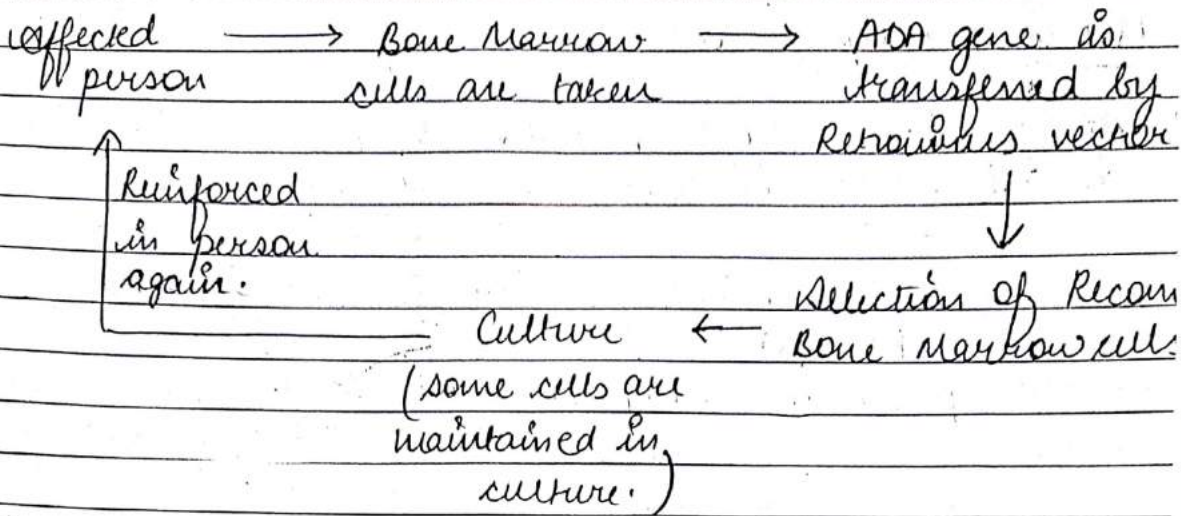 affected ⟶ Bone Marrow ⟶ ADA gene is
person cells are taken transferred by
Retrovirus vector
↓
Selection of Recom
Bone Marrow cells
← Culture
(some cells are
maintained in
culture.)
Reinforced
in person
again.